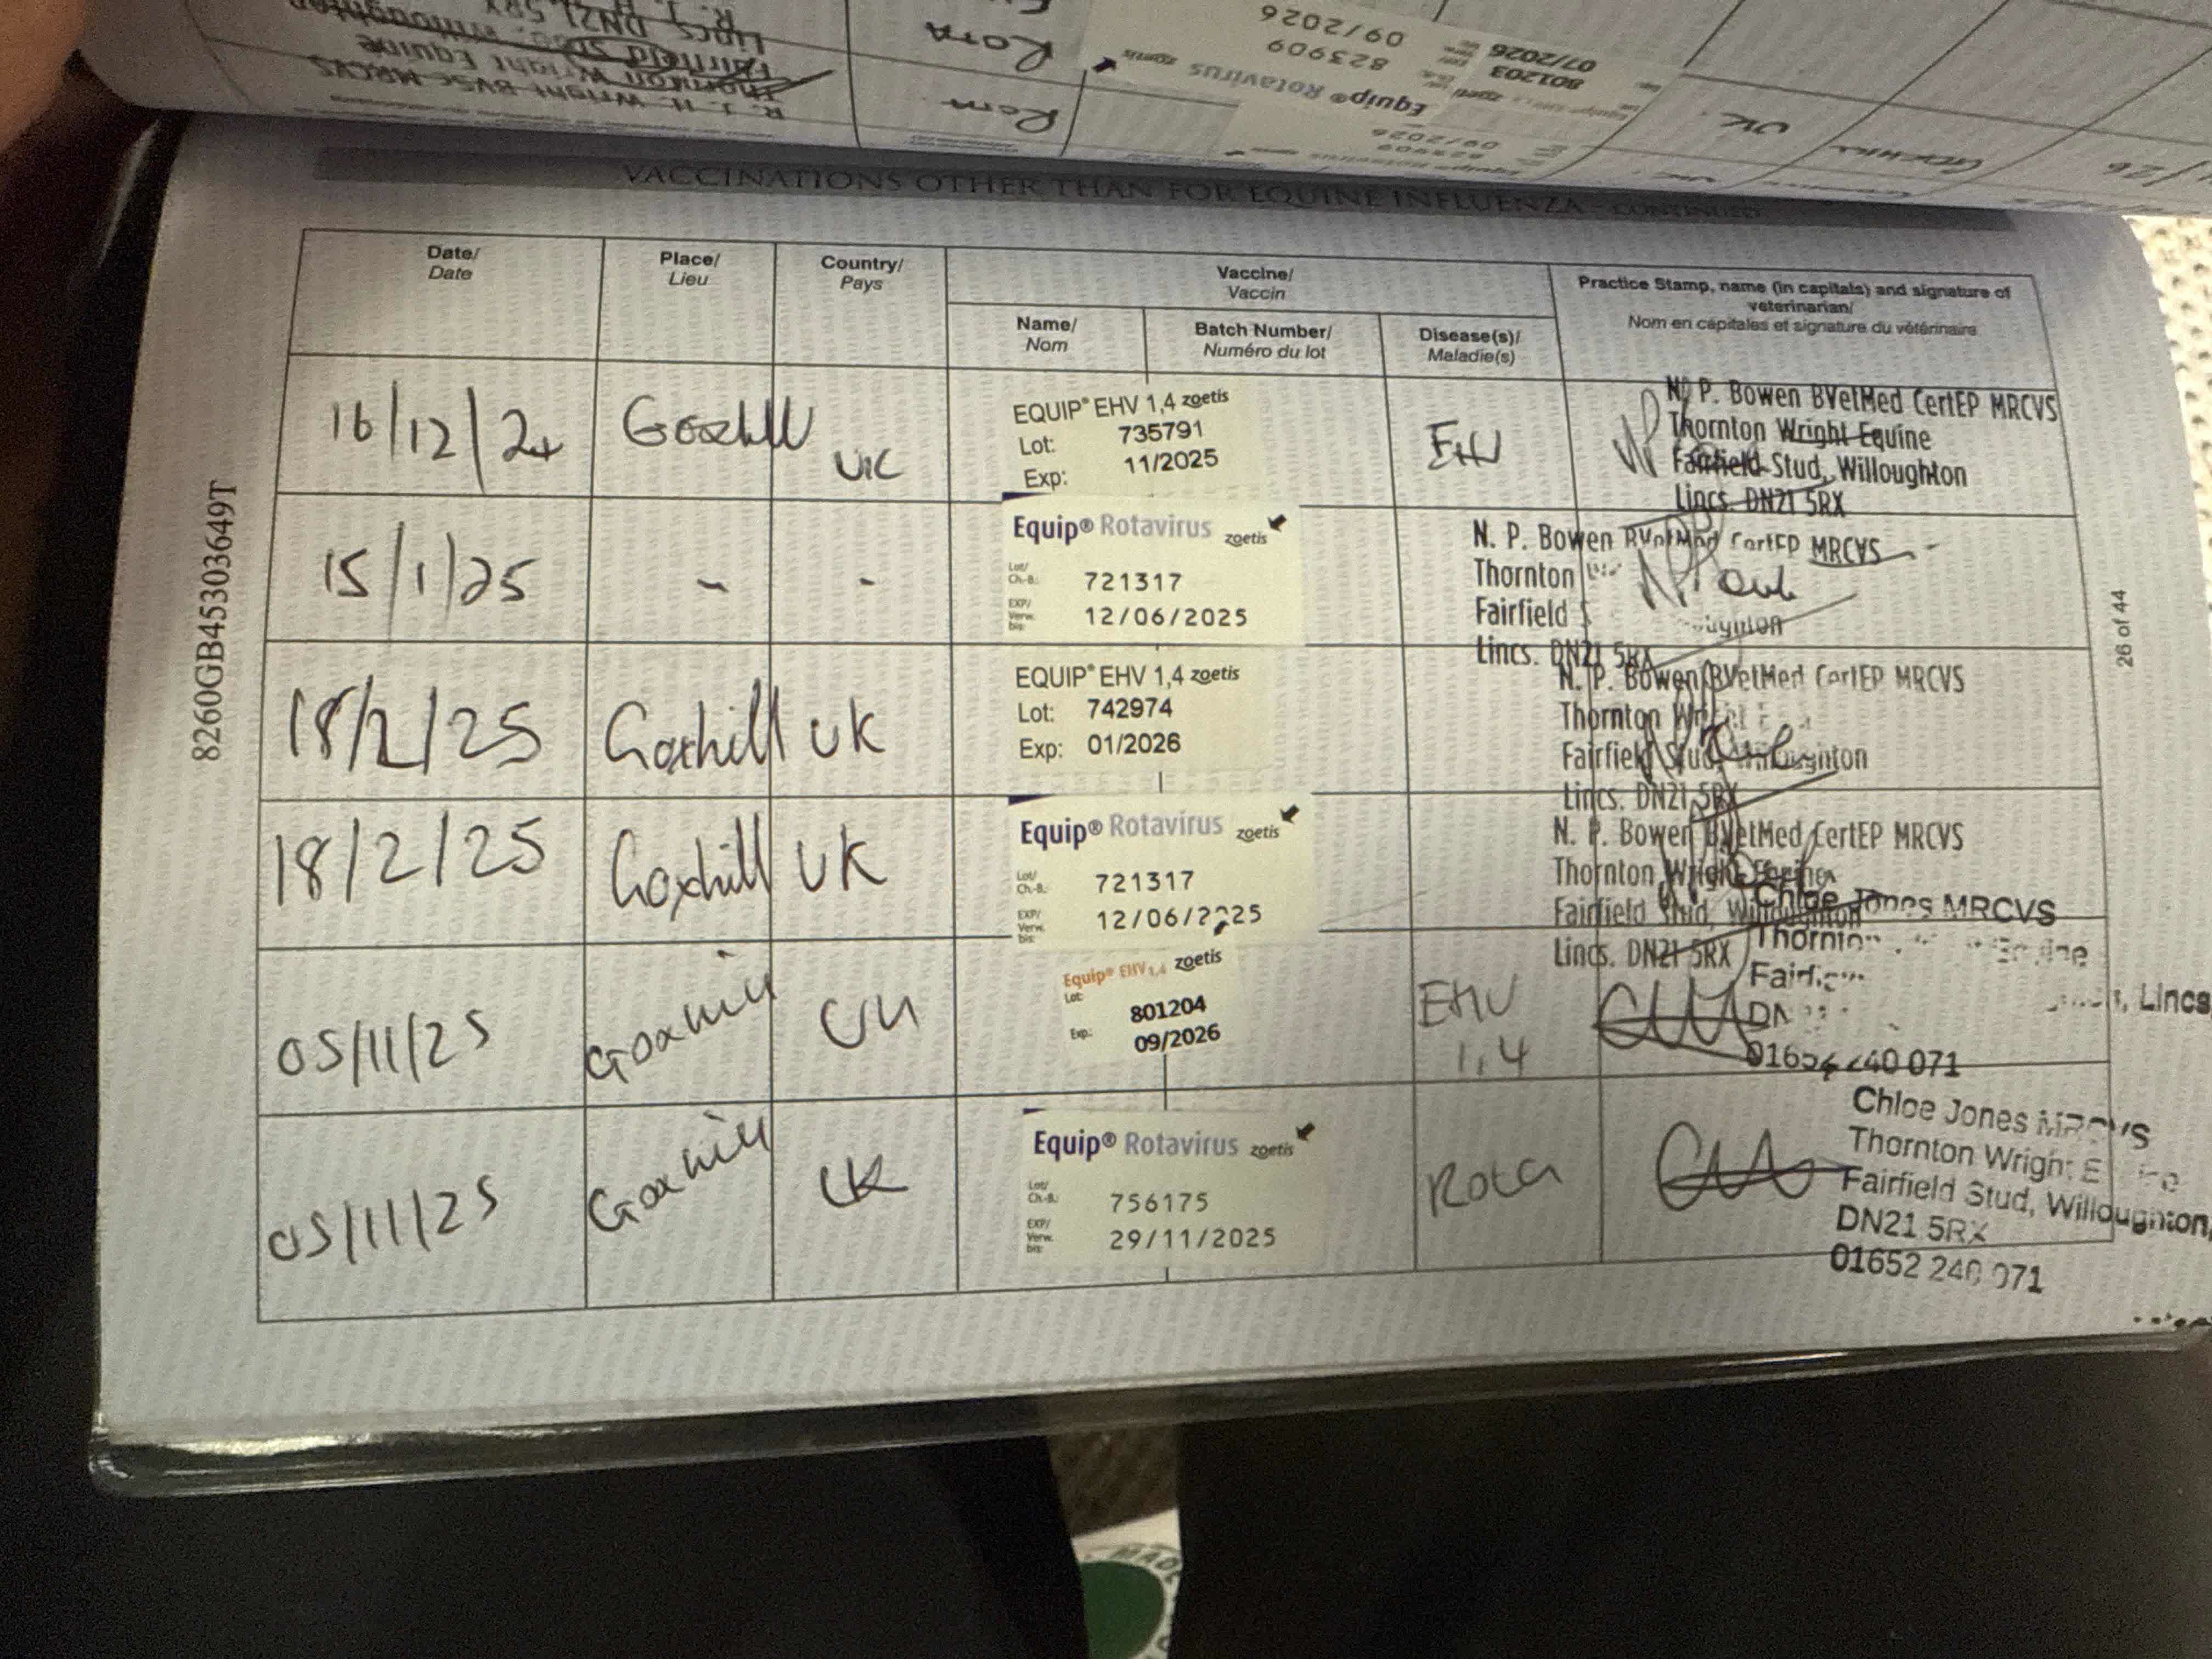 VACCINATIONS OTHER THAN FOR EQUINE INFLUENZA - CONTINUED
Date/
Date
Place/
Lieu
Country/
Pays
Vaccine/
Vaccin
Practice Stamp, name (in capitals) and signature of
veterinarian/
Nom en capitales et signature du vétérinaire
Name/
Nom
Batch Number/
Numéro du lot
Disease(s)/
Maladie(s)
16/12/24
Goxhill
UK
EQUIP® EHV 1,4 zoetis
Lot: 735791
Exp: 11/2025
EHV
N. P. Bowen BVetMed CertEP MRCVS
Thornton Wright Equine
Fairfield Stud, Willoughton
Lincs. DN21 5RX
15/1/25
-
-
Equip® Rotavirus zoetis
Lot/
Ch.-B.: 721317
EXP/
Verw.
bis: 12/06/2025
N. P. Bowen BVetMed CertEP MRCVS
Thornton
Fairfield
Lincs. DN21 5RX
18/2/25
Goxhill
UK
EQUIP® EHV 1,4 zoetis
Lot: 742974
Exp: 01/2026
N. P. Bowen BVetMed CertEP MRCVS
Thornton
Fairfield Stud, Willoughton
Lincs. DN21 5RX
18/2/25
Goxhill
UK
Equip® Rotavirus zoetis
Lot/
Ch.-B.: 721317
EXP/
Verw.
bis: 12/06/2025
N. P. Bowen BVetMed CertEP MRCVS
Thornton Wright Equine
Fairfield Stud, Willoughton
Lincs. DN21 5RX
05/11/25
Goxhill
UK
Equip® EHV 1,4 zoetis
Lot: 801204
Exp.: 09/2026
EHV
1,4
Chloe Jones MRCVS
Lincs
05/11/25
Goxhill
UK
Equip® Rotavirus zoetis
Lot/
Ch.-B.: 756175
EXP/
Verw.
bis: 29/11/2025
Rota
Chloe Jones MRCVS
Thornton Wright
Fairfield Stud, Willoughton,
DN21 5RX
01652 240 071
8260GB45303649T
26 of 44
R. J. H. Wright BVSc MRCVS
Rota
Rota
Equip® Rotavirus zoetis
823909
09/2026
801203
07/2026
UK